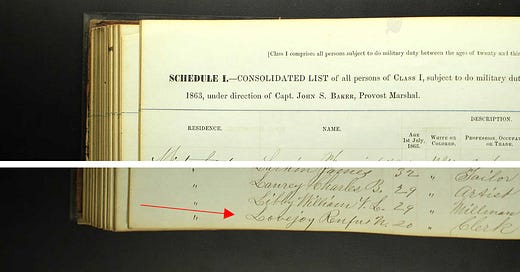 [Class I comprises all persons subject to do military duty between the ages of twenty and thi
SCHEDULE I.—CONSOLIDATED LIST of all persons of CLASS I, subject to do military dut
1863, under direction of Capt. JOHN S. BAKER, Provost Marshal.
DESCRIPTION.
RESIDENCE. NAME. AGE 1st July, 1863. WHITE OR COLORED. PROFESSION, OCCUPA OR TRADE.
James 32 " Tailor
" Laurey Charles B. 29 " Artist
" Libby William F. L. 29 " Millman
" Lovejoy Rufus N. 20 " Clerk